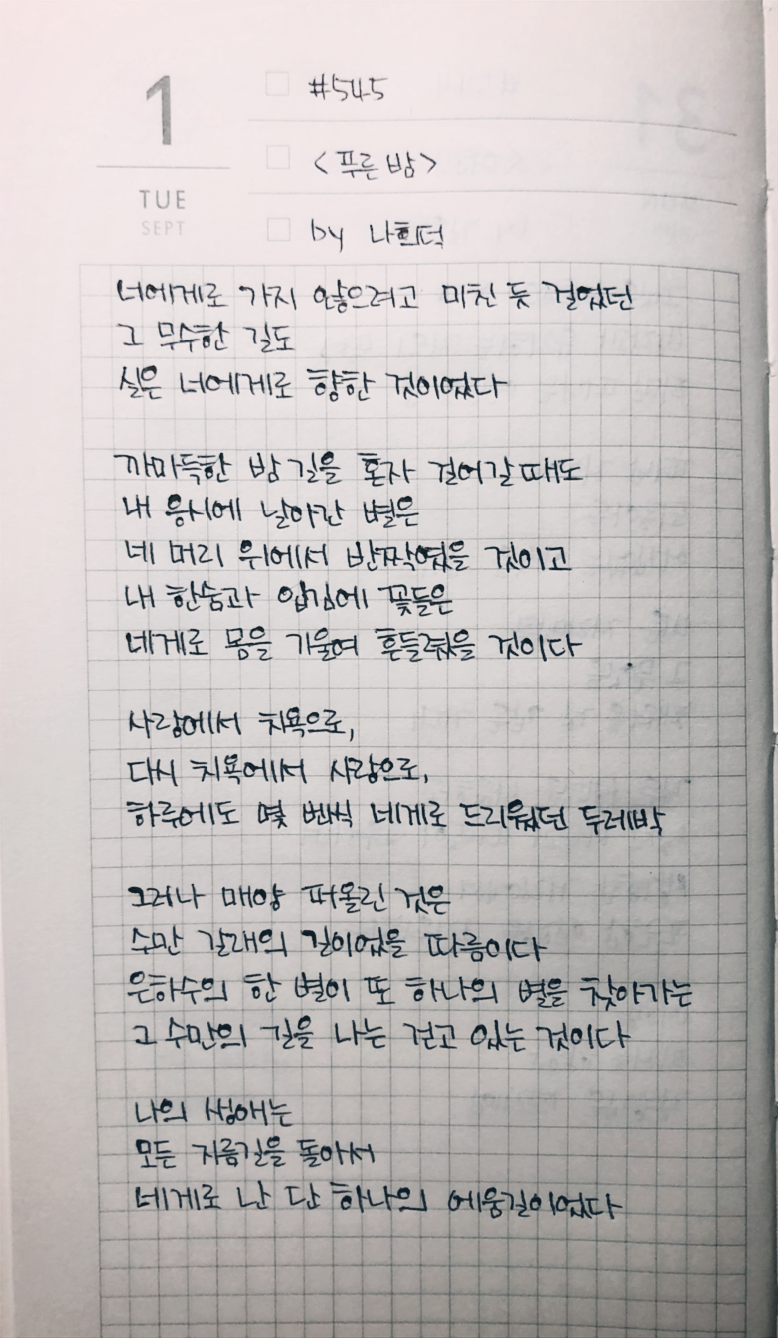 1
TUE
SEPT
#545
<푸른 밤>
by 나희덕
너에게로 가지 않으려고 미친 듯 걸었던
그 무수한 길도
실은 너에게로 향한 것이었다
까마득한 밤 길을 혼자 걸어갈 때도
내 응시에 날아간 별은
네 머리 위에서 반짝였을 것이고
내 한숨과 입김에 꽃들은
네게로 몸을 기울여 흔들렸을 것이다
사랑에서 치욕으로,
다시 치욕에서 사랑으로,
하루에도 몇 번씩 네게로 드리웠던 두레박
그러나 매양 퍼올린 것은
수만 갈래의 길이었을 따름이다
은하수의 한 별이 또 하나의 별을 찾아가는
그 수만의 길을 나는 걷고 있는 것이다
나의 생애는
모든 지름길을 돌아서
네게로 난 단 하나의 에움길이었다